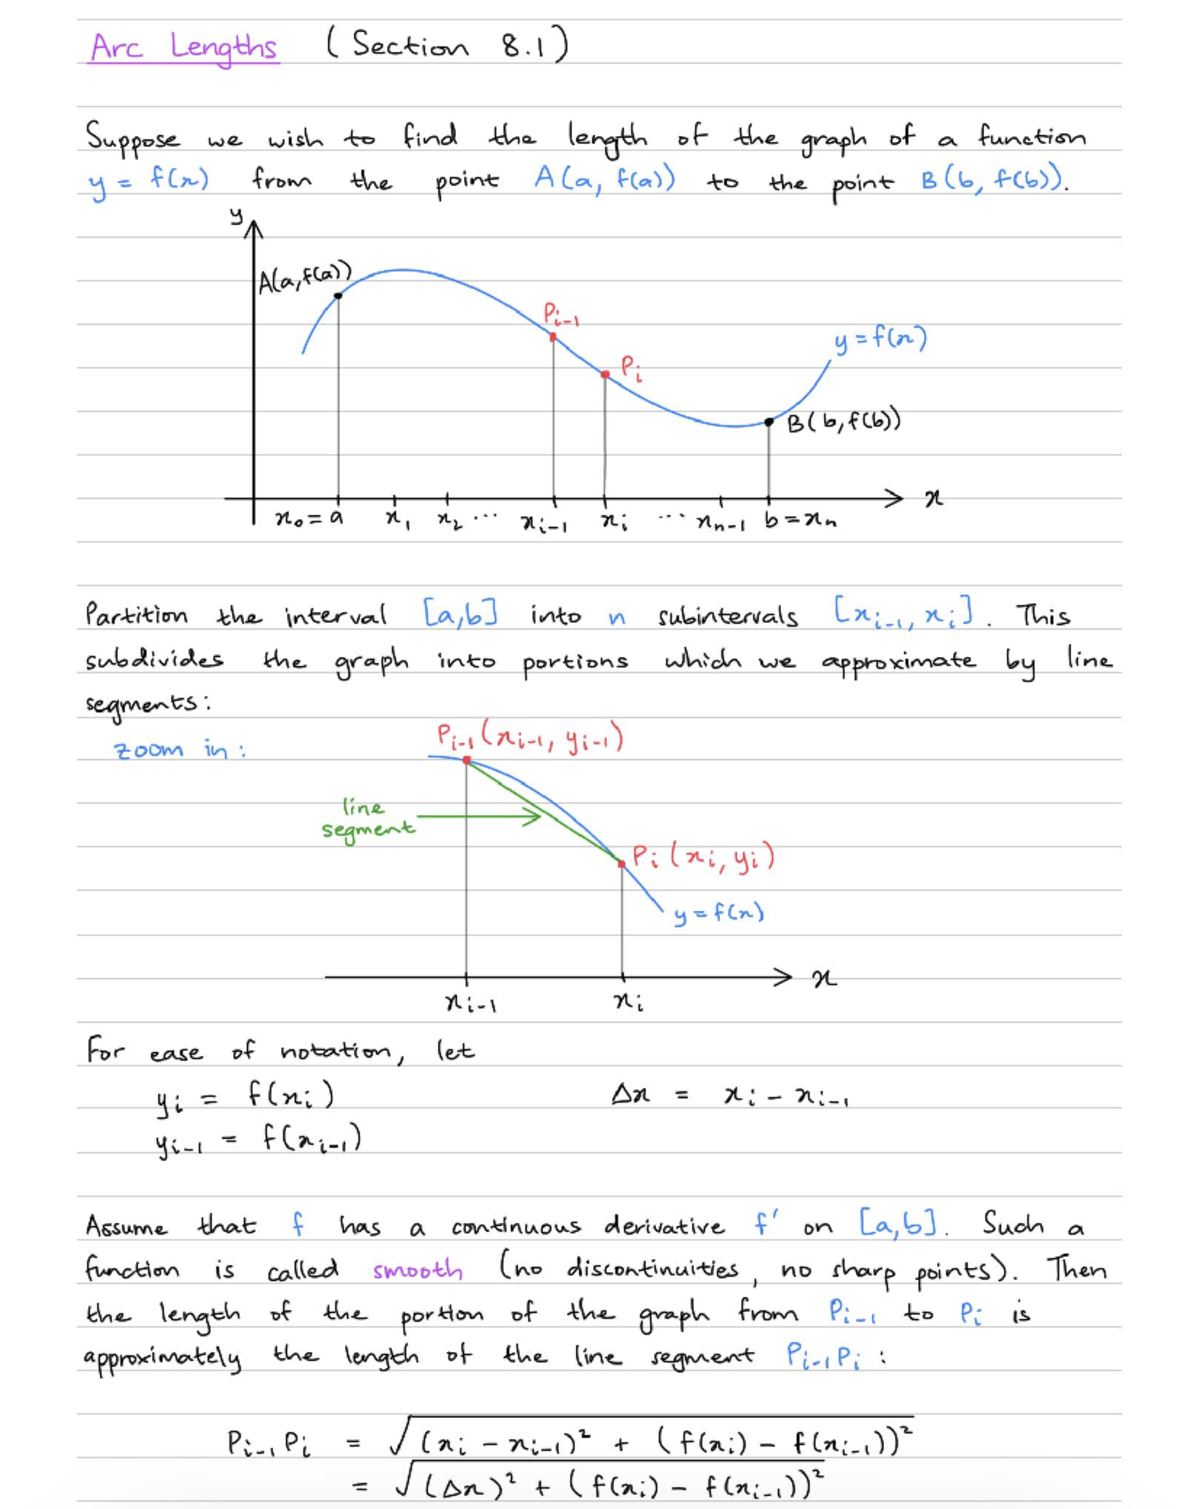 Arc Lengths (Section 8.1)
Suppose we wish to find the length of the graph of a function
y = f(x) from the point A(a, f(a)) to the point B(b, f(b)).
y
A(a, f(a))
Pᵢ₋₁
y = f(x)
Pᵢ
B(b, f(b))
x
x₀ = a x₁ x₂ ... xᵢ₋₁ xᵢ ... xₙ₋₁ b = xₙ
Partition the interval [a,b] into n subintervals [xᵢ₋₁, xᵢ]. This
subdivides the graph into portions which we approximate by line
segments:
Pᵢ₋₁(xᵢ₋₁, yᵢ₋₁)
zoom in:
line
segment
Pᵢ(xᵢ, yᵢ)
y = f(x)
x
xᵢ₋₁ xᵢ
For ease of notation, let
yᵢ = f(xᵢ) Δx = xᵢ - xᵢ₋₁
yᵢ₋₁ = f(xᵢ₋₁)
Assume that f has a continuous derivative f' on [a,b]. Such a
function is called smooth (no discontinuities, no sharp points). Then
the length of the portion of the graph from Pᵢ₋₁ to Pᵢ is
approximately the length of the line segment Pᵢ₋₁Pᵢ:
Pᵢ₋₁Pᵢ = √((xᵢ - xᵢ₋₁)² + (f(xᵢ) - f(xᵢ₋₁))²)
= √((Δx)² + (f(xᵢ) - f(xᵢ₋₁))²)